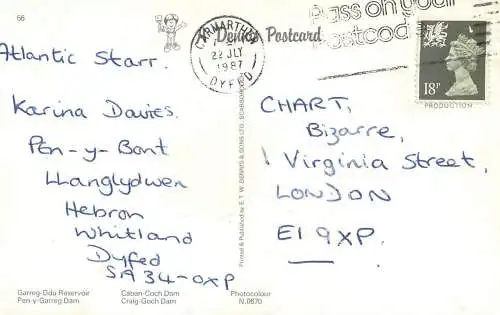 56
Dennis Postcard
CARMARTHEN
22 JLY
1987
DYFED
Pass on your
Postcode
18P
PRODUCTION
Atlantic Starr.
Karina Davies.
Pen-y-Bont
Llanglydwen
Hebron
Whitland
Dyfed
SA34-0XP
Printed & Published by E. T. W. DENNIS & SONS LTD., SCARBOROUGH
CHART,
Bizarre,
1 Virginia Street,
LONDON
E1 9XP.
Garreg-Ddu Reservoir
Pen-y-Garreg Dam
Caban-Coch Dam
Craig-Goch Dam
Photocolour
N.0670